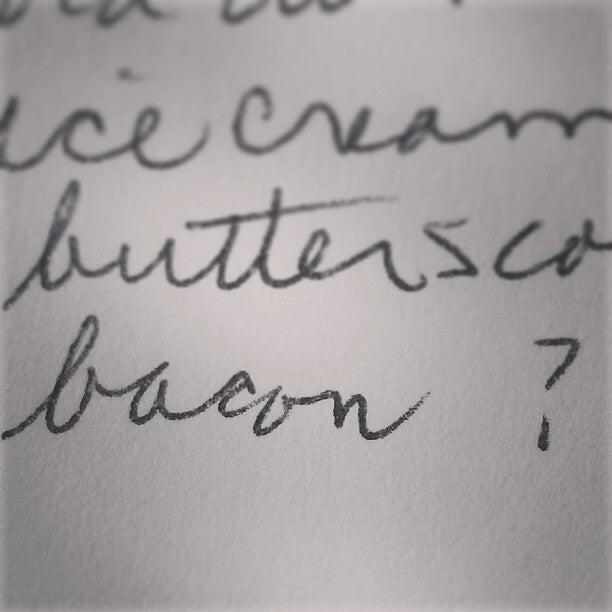 ice cream
buttersco
bacon ?